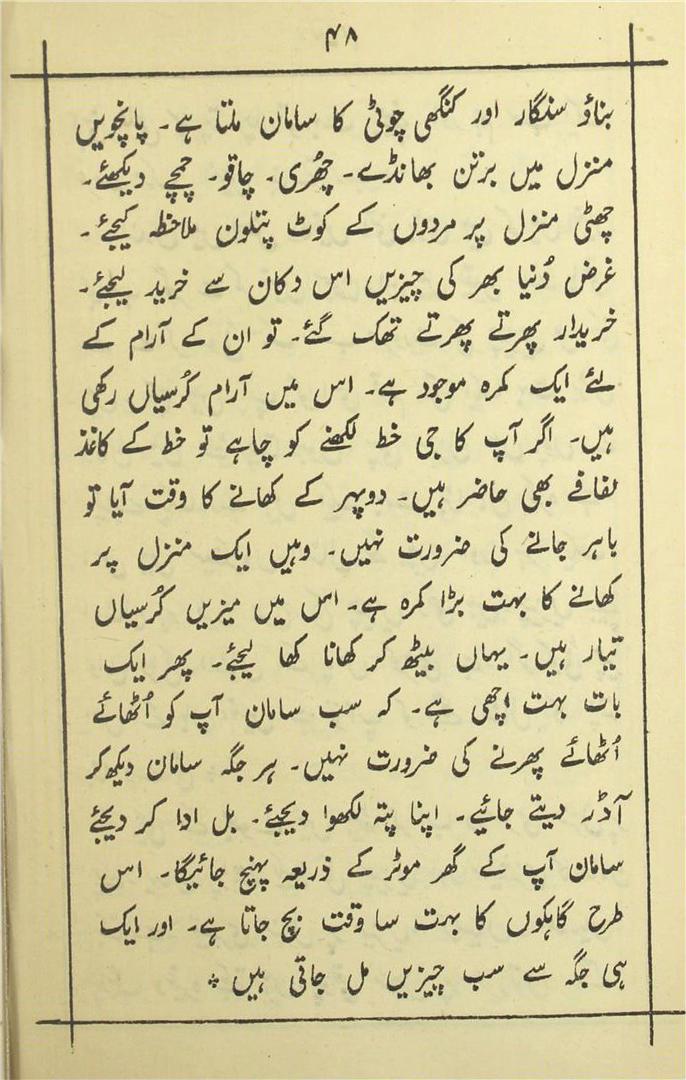 ۴۸
بناؤ سنگار اور کنگھی چوٹی کا سامان ملتا ہے۔ پانچویں
منزل میں برتن بھانڈے۔ چھُری۔ چاقو۔ چمچے دیکھئے۔
چھٹی منزل پر مردوں کے کوٹ پتلون ملاحظہ کیجئے۔
غرض دُنیا بھر کی چیزیں اس دکان سے خرید لیجئے۔
خریدار پھرتے پھرتے تھک گئے۔ تو ان کے آرام کے
لئے ایک کمرہ موجود ہے۔ اس میں آرام کُرسیاں رکھی
ہیں۔ اگر آپ کا جی خط لکھنے کو چاہے تو خط کے کاغذ
لفافے بھی حاضر ہیں۔ دوپہر کے کھانے کا وقت آیا تو
باہر جانے کی ضرورت نہیں۔ وہیں ایک منزل پر
کھانے کا بہت بڑا کمرہ ہے۔ اس میں میزیں کُرسیاں
تیار ہیں۔ یہاں بیٹھ کر کھانا کھا لیجئے۔ پھر ایک
بات بہت اچھی ہے۔ کہ سب سامان آپ کو اُٹھائے
اُٹھائے پھرنے کی ضرورت نہیں۔ ہر جگہ سامان دیکھ کر
آڈر دیتے جائیے۔ اپنا پتہ لکھوا دیجئے۔ بل ادا کر دیجئے
سامان آپ کے گھر موٹر کے ذریعہ پہنچ جائیگا۔ اس
طرح گاہکوں کا بہت سا وقت بچ جاتا ہے۔ اور ایک
ہی جگہ سے سب چیزیں مل جاتی ہیں ؞